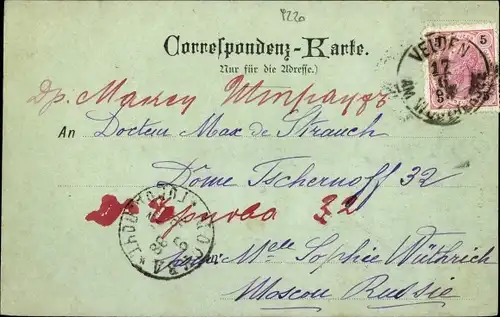 1220
Correspondenz-Karte.
Nur für die Adresse.)
5
VELDEN
17
Др. Максу Штрауху
An Docteur Max de Strauch
Dome Tschernoff 32
Чернова 32
МОСКВА
pour Melle Sophie Wüthrich
Moscou Russie